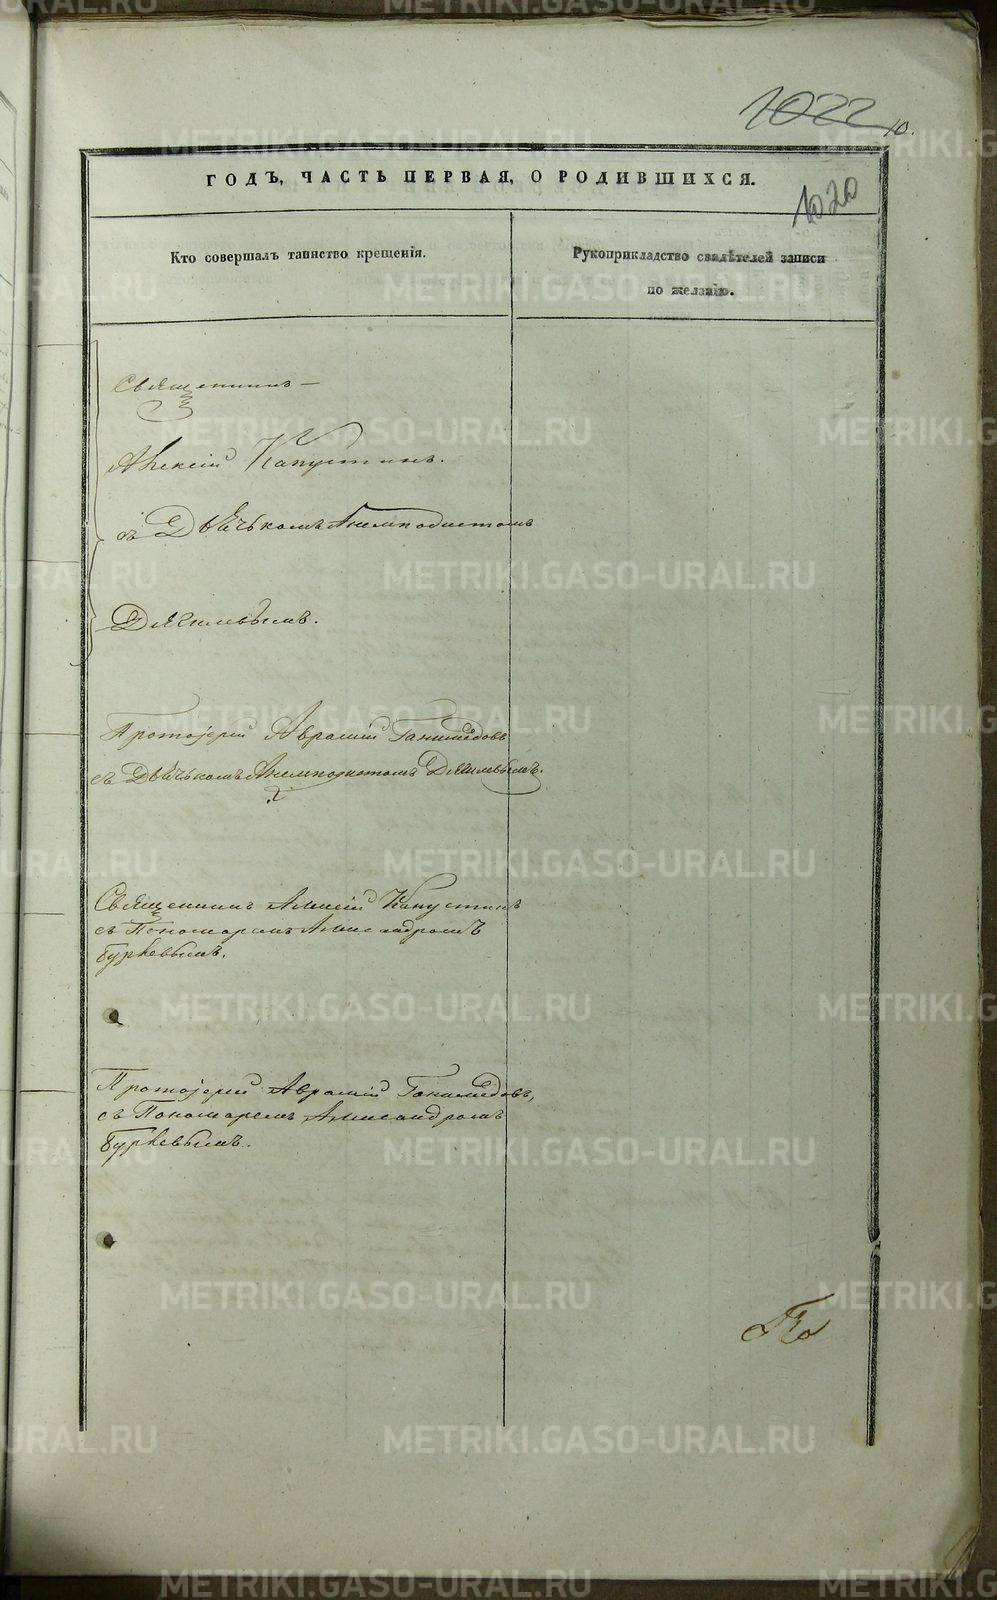 1022
10.
ГОДЪ, ЧАСТЬ ПЕРВАЯ, О РОДИВШИХСЯ.
1020
Кто совершалъ таинство крещенія.
Рукоприкладство свидѣтелей записи
по желанію.
Священникъ —
Алексій Капустинъ.
съ Дьячькомъ Анемподистомъ
Дягилевымъ.
Протоіерей Аврамій Ганимедовъ
съ Дьячькомъ Анемподистомъ Дягилевымъ.
Священникъ Алексій Капустинъ
съ Пономаремъ Александромъ
Протоіерей Аврамій Ганимедовъ,
съ Пономаремъ Александромъ
METRIKI.GASO-URAL.RU